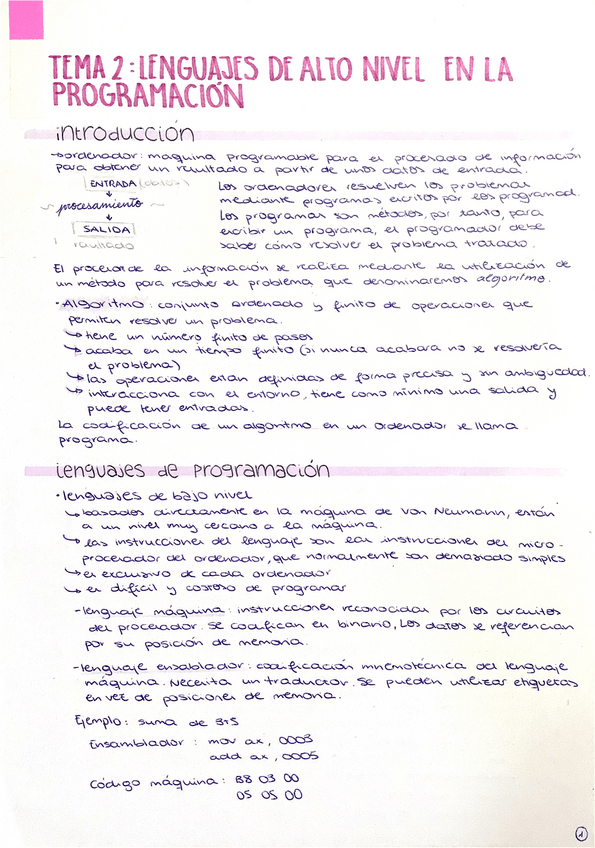 TEMA 2: LENGUAJES DE ALTO NIVEL EN LA
PROGRAMACIÓN
introducción
→ordenador: maquina programable para el procesado de información
para obtener un resultado a partir de unos datos de entrada.
ENTRADA (datos)
↓
procesamiento
↓
SALIDA
resultado
Los ordenadores resuelven los problemas
mediante programas escritos por los programad.
Los programas son métodos, por tanto, para
escribir un programa, el programador debe
saber cómo resolver el problema tratado.
El procesar de la información se realiza mediante la utilización de
un método para resolver el problema que denominaremos algoritmo.
· Algoritmo: conjunto ordenado y finito de operaciones que
permiten resolver un problema.
↳ tiene un número finito de pasos
↳ acaba en un tiempo finito (si nunca acabara no se resolvería
el problema)
↳ las operaciones estan definidas de forma precisa y sin ambiguedad.
↳ interacciona con el entorno, tiene como mínimo una salida y
puede tener entradas.
La codificación de un algoritmo en un ordenador se llama
programa.
lenguajes de programación
· lenguajes de bajo nivel
↳ basados directamente en la máquina de Von Neumann, están
a un nivel muy cercano a la máquina.
↳ las instrucciones del lenguaje son las instrucciones del micro-
procesador del ordenador, que normalmente son demasiado simples
↳ es exclusivo de cada ordenador
↳ es difícil y costoso de programar
- lenguaje máquina: instrucciones reconocidas por los circuitos
del procesador. Se codifican en binario, Los datos se referencian
por su posición de memoria.
- lenguaje ensablador: codificación mnemotécnica del lenguaje
máquina. Necesita un traductor. Se pueden utilizar etiquetas
en vez de posiciones de memoria.
Ejemplo: suma de 3+5
Ensamblador: mov ax, 0003
add ax, 0005
Código máquina: B8 03 00
05 05 00
1